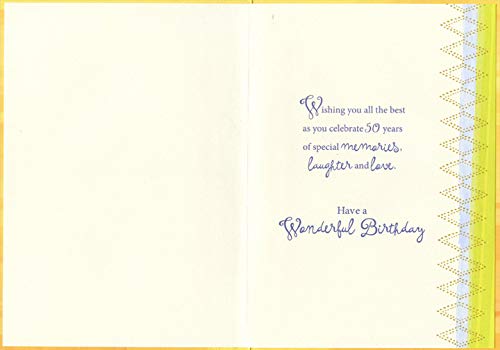 Wishing you all the best
as you celebrate 50 years
of special memories,
laughter and love.
Have a
Wonderful Birthday